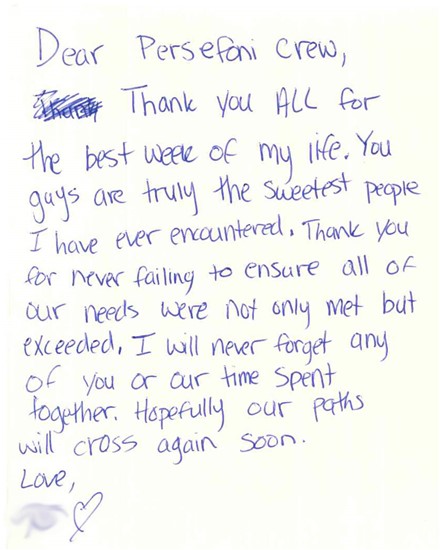 Dear Persefoni Crew,
Thank you ALL for
the best week of my life. You
guys are truly the sweetest people
I have ever encountered. Thank you
for never failing to ensure all of
our needs were not only met but
exceeded. I will never forget any
of you or our time spent
together. Hopefully our paths
will cross again soon.
Love,